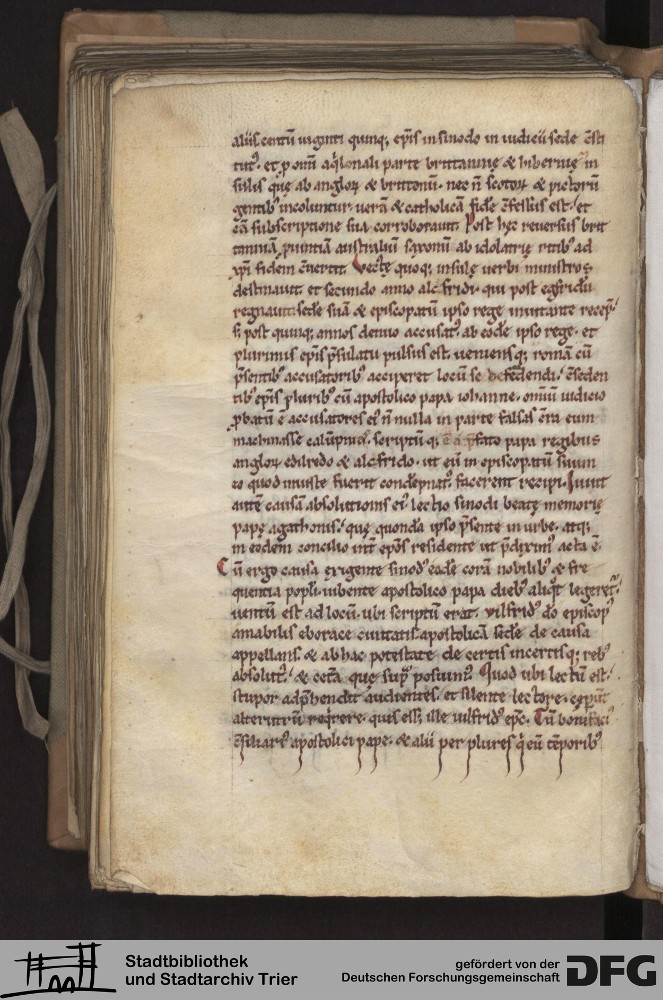 aliis centū uiginti quinq; ep̄is in sinodo in iudicii sede c̄sti
tut᷒. et p̱ om̄i aq̇lonali parte brittannię & hibernię in
sulis quę ab angloꝝ & brittonū. nec n̄ scotoꝝ & pictorū
gentib᷒ incoluntur. uerā & catholicā fide c̄fessus est. et
cā subscriptione sua corroborauit. Post hęc reuersus brit
tanniā. ꝓuintiā australiū saxonū ab idolatrię ritib᷒ ad
xp̄i fidem c̄uertit. Vectę quoq; insulę uerbi ministros
destinauit. et secundo anno alcfridi. qui post egfridū
regnauit. sede suā & episcopatū ipso rege inuitante recep̄.
s; post quinq; annos denuo accusat᷒. ab eodē ipso rege. et
plurimis ep̄is p̄sulatu pulsus est. ueniensq; romā cū
p̄sentib᷒ accusatorib᷒ acciperet locū se defēdendi. c̄seden
tib᷒ ep̄is plurib᷒ cū apostolico papa iohanne. omniū iudicio
ꝓbatū ē accusatores ei᷒ n̄ nulla in parte falsas c̄tra eum
machinasse calūpnias. scriptū q; a p̄fato papa regibus
angloꝝ edilredo & alcfrido. ut eū in episcopatū suum
eo quod iniuste fuerit condēpnat᷒. facerent recipi. Iuuit
autē causā absolutionis ei᷒ lectio sinodi beatę memorię
papę agathonis. quę quondā ipso p̄sente in urbe. atq;
in eodem concilio int̄ ep̄os residente ut p̄dixim᷒ acta ē.
Cū ergo causa exigente sinod᷒ eadē corā nobilib᷒ & fre
quentia popl̄i. iubente apostolico papa dieb᷒ aliq̇t legeret᷒.
uentū est ad locū. ubi scriptū erat. vilfrid᷒ dō episcop᷒
amabilis eborace ciuitatis. apostolicā sedē de causa
appellans. & ab hac potestate de certis incertisq; reb᷒
absolut᷒. & cet̄a quę sup̄ posuim᷒. Quod ubi lectū est.
stupor adp̄hendit audientes. et silente lectore. cęper̄t
alterutrū req̇rere. quis ess; ille uilfrid᷒ ep̄c. Tū bonifaci᷒
c̄siliari᷒ apostolici pape. & alii per plures q̇ eū tēporib᷒
Stadtbibliothek
und Stadtarchiv Trier
gefördert von der
Deutschen Forschungsgemeinschaft
DFG